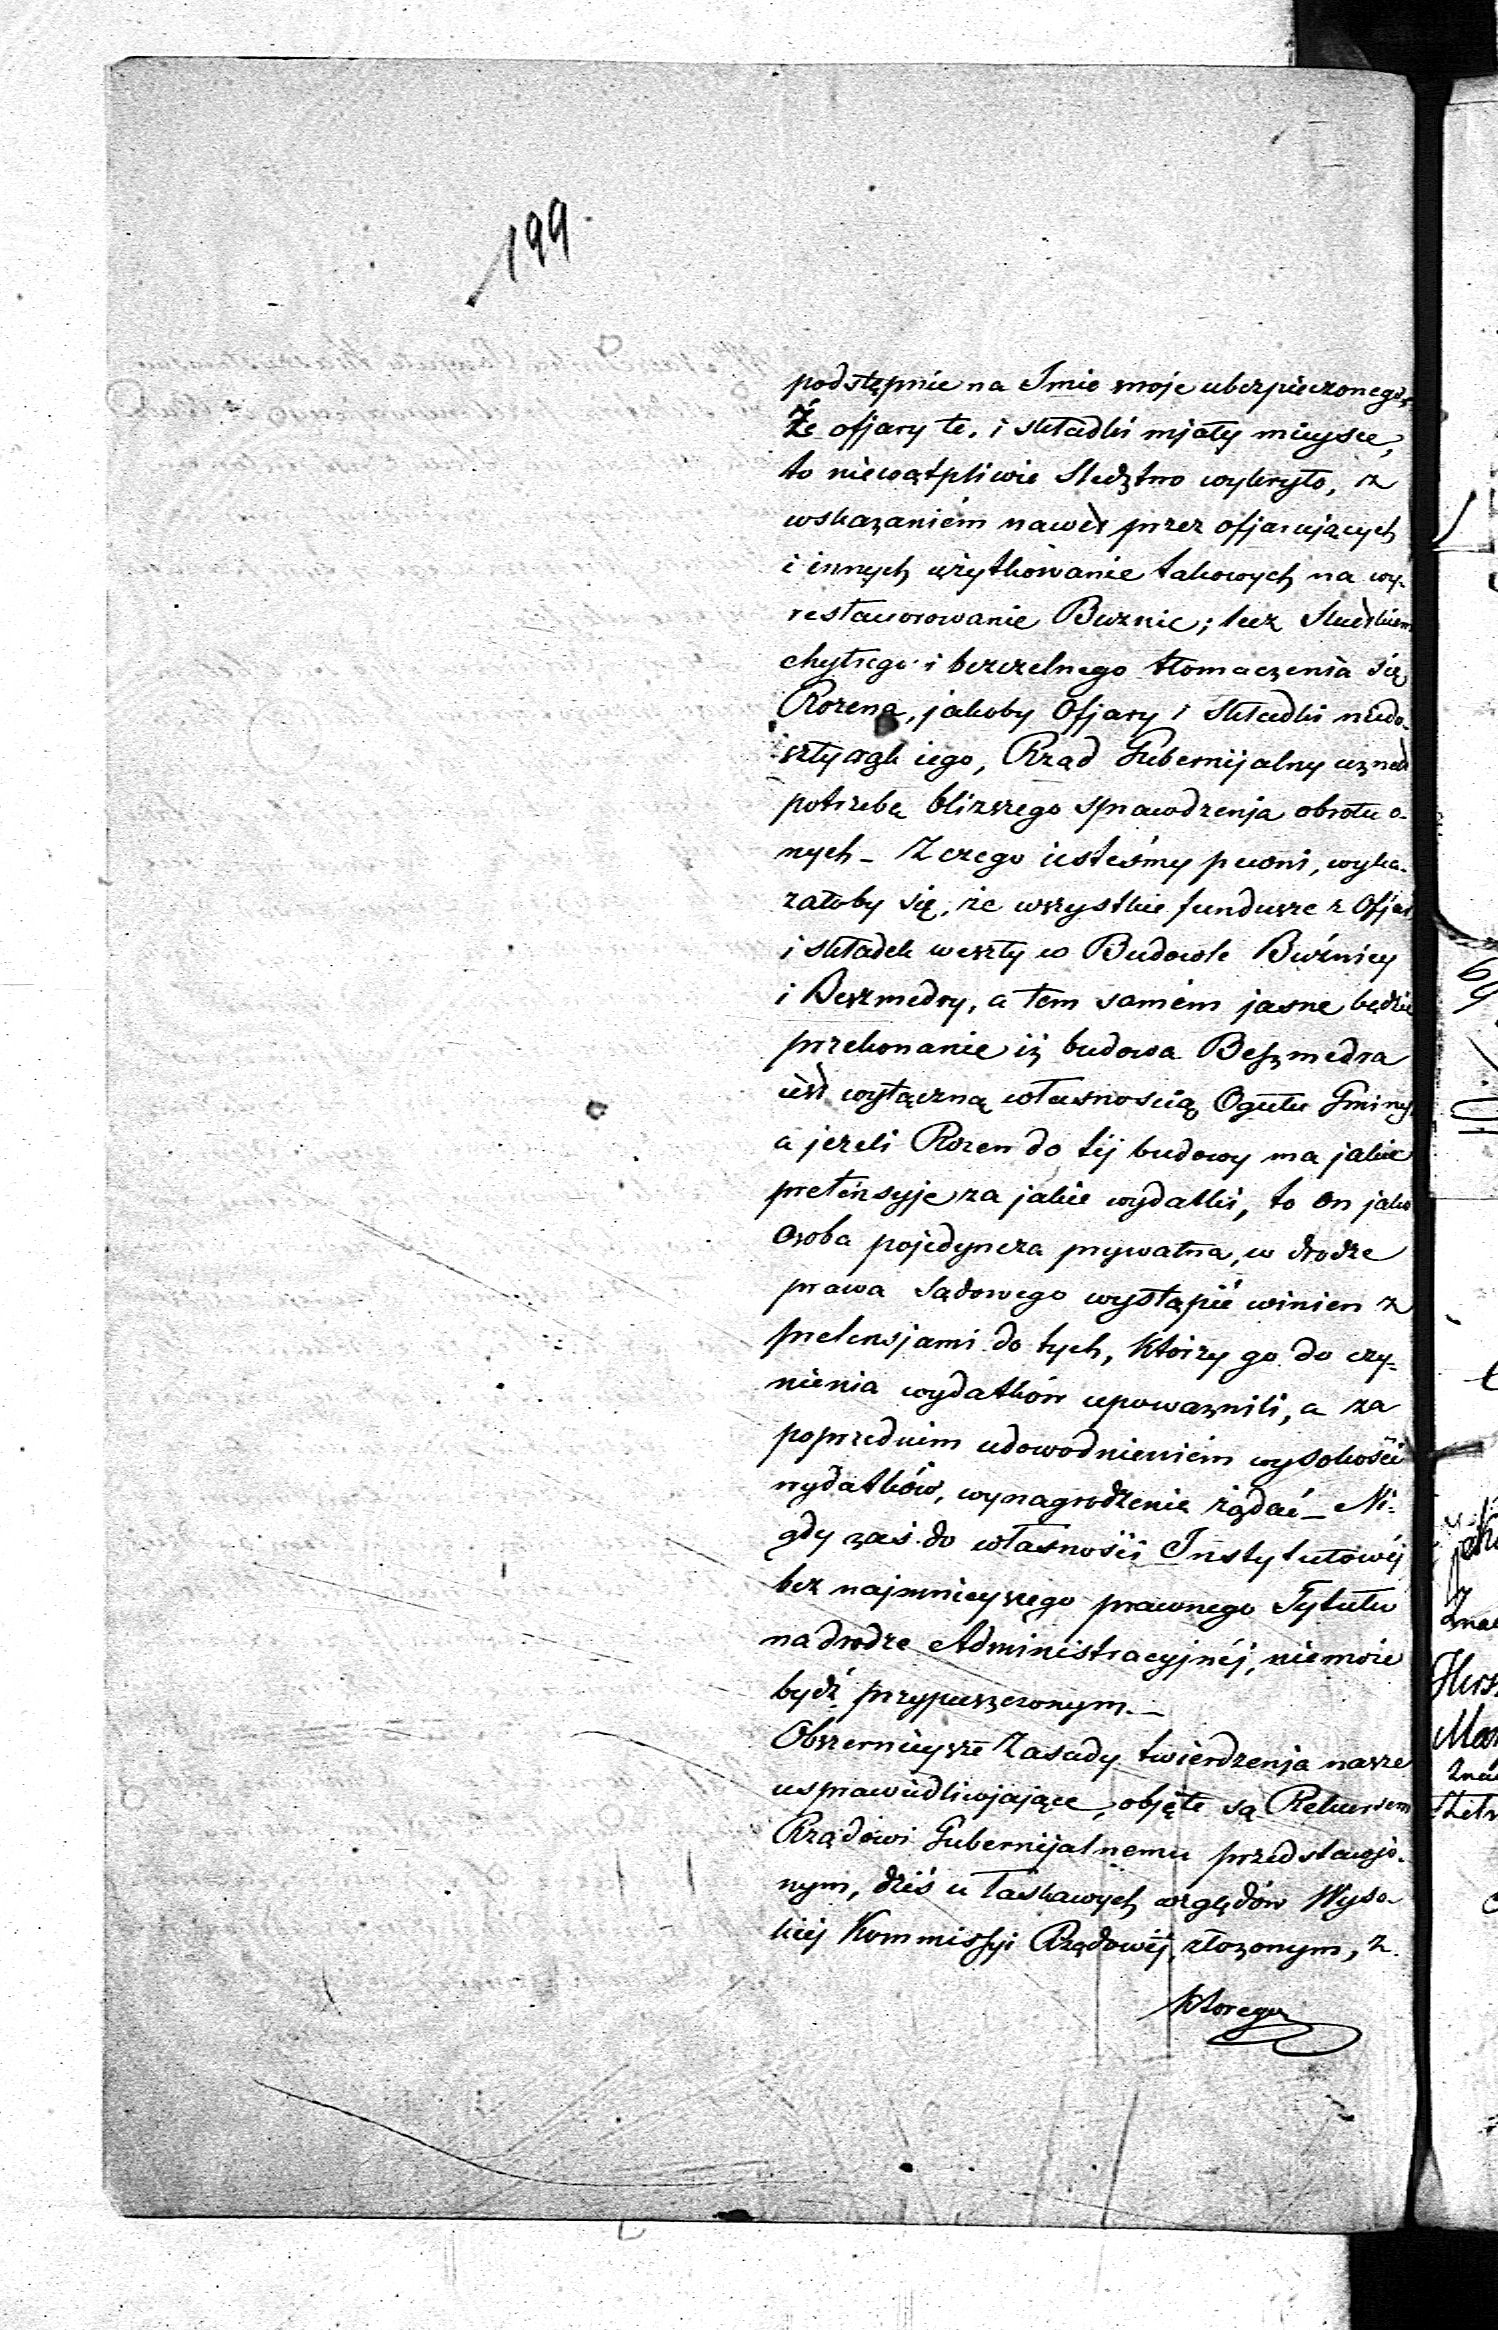 199.
podstępnie na Imie moje ubezpieczonego,
Że ofjary te, i składki mjały mieysce,
to niewątpliwie Sledztwo wykryło, z
wskazaniem nawet przez ofjarujących
i innych użytkowanie takowych na wy-
restaurowanie Buznic; lecz Skutkiem
chytrego i bezczelnego tłomaczenia się
Rozena, jakoby Ofjary i Składki niedo-
szły rąk iego, Rząd Gubernijalny uznał
potrzebę bliższego sprawdzenja obrotu o-
nych – Z czego iesteśmy pewni, wyka-
załoby się, że wszystkie fundusze z Ofjar
i składek weszły w Budowle Buźnicy
i Beszmedry, a tem samém jasne będzie
przekonanie iż budowa Beszmedra
iest wyłączną własnoscią Ogułu Gminy
a jezeli Rozen do téj budowy ma jakie
pretensyje za jakie wydatki, to on jako
osoba pojedyncza prywatna, w drodze
prawa Sądowego wystąpić winien z
pretensjami do tych, którzy go do czy-
nienia wydatków upoważnili, a za
poprzednim udowodnieniem wysokości
wydatków, wynagrodzenia żądać – Ni-
gdy zaś do własności Instytutowéj
bez najmnieyszego prawnego Tytułu
na drodze Administracyjnéj, niemoże
bydź przypuszczonym. –
Obszernieysze Zasady twierdzenja nasze
usprawiedliwjające, objęte są Rekursem
Rządowi Gubernijalnemu przedstawjo-
nym, dziś u łaskawych względów Wyso-
kiéj Kommissyi Rządowéj, złożonym, z
którego